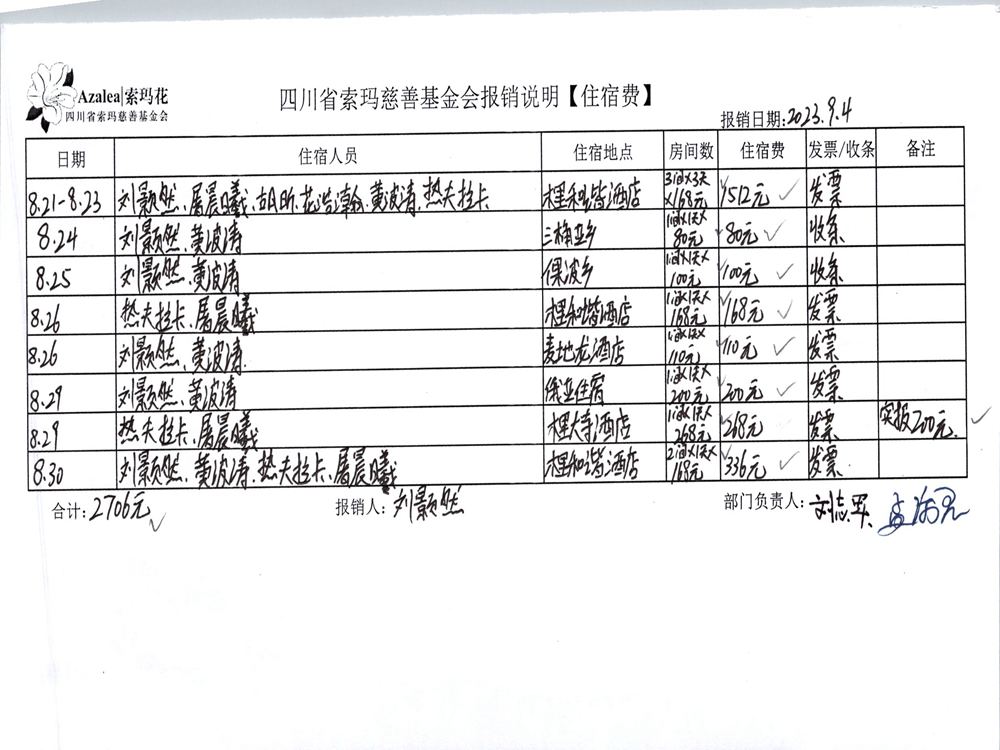 Azalea|索玛花
四川省索玛慈善基金会
四川省索玛慈善基金会报销说明【住宿费】
报销日期:2023.9.4
日期 住宿人员 住宿地点 房间数 住宿费 发票/收条 备注
8.21-8.23 刘颢然、屠晨曦、胡昕、黄波涛、热夫拉卡 和谐酒店 3间×3天×168元 1512元 发票
8.24 刘颢然、黄波涛 三桷垭乡 1间×1天×80元 80元 收条
8.25 刘颢然、黄波涛 倮波乡 1间×1天×100元 100元 收条
8.26 热夫拉卡、屠晨曦 和谐酒店 1间×1天×168元 168元 发票
8.26 刘颢然、黄波涛 麦地龙酒店 1间×1天×110元 110元 发票
8.29 刘颢然、黄波涛 俄亚住宿 1间×1天×200元 200元 发票
8.29 热夫拉卡、屠晨曦 大寺酒店 1间×1天×268元 268元 发票 实报200元
8.30 刘颢然、黄波涛、热夫拉卡、屠晨曦 和谐酒店 2间×1天×168元 336元 发票
合计:2706元 报销人:刘颢然 部门负责人:刘志军